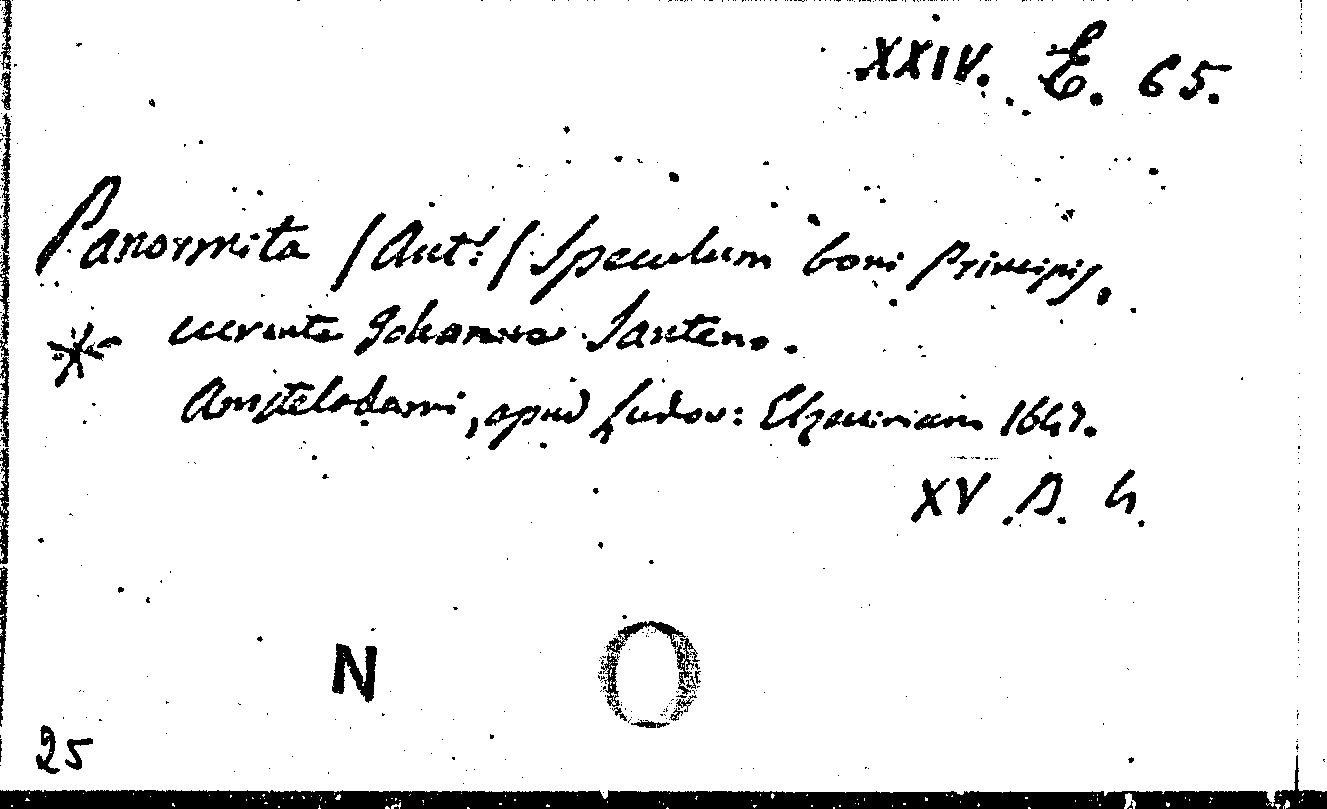 XXIV. E. 65.
Panormita /Ant:/ Speculum boni Principis,
* curante Johanne Santeno.
Amstelodami, apud Ludov: Elzeuirium 1647.
XV. D. 4.
N
25